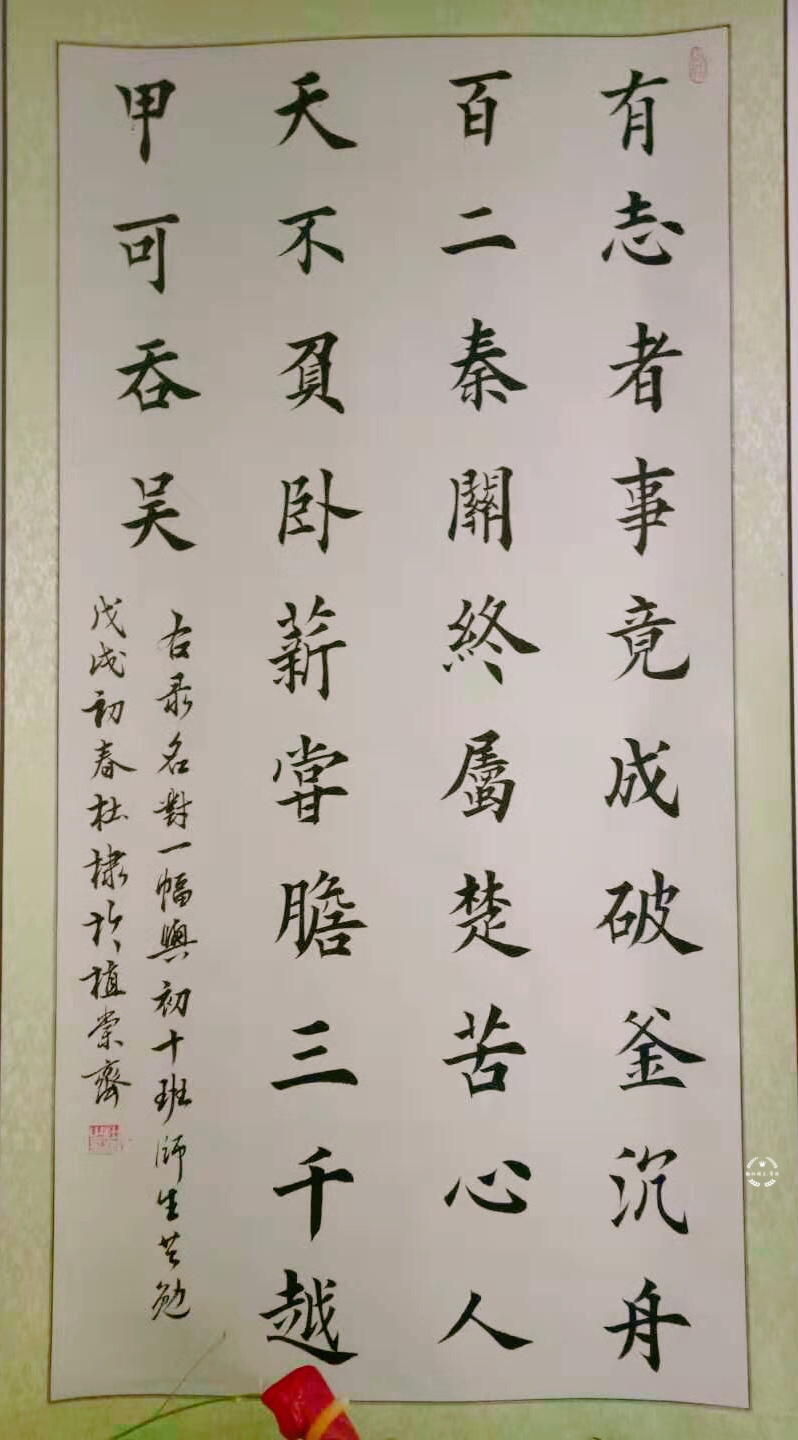 有志者事竟成破釜沉舟
百二秦關終屬楚苦心人
天不負卧薪嘗膽三千越
甲可吞吴
右录名對一幅與初十班师生共勉
戊戌初春杜棣於植棠齋